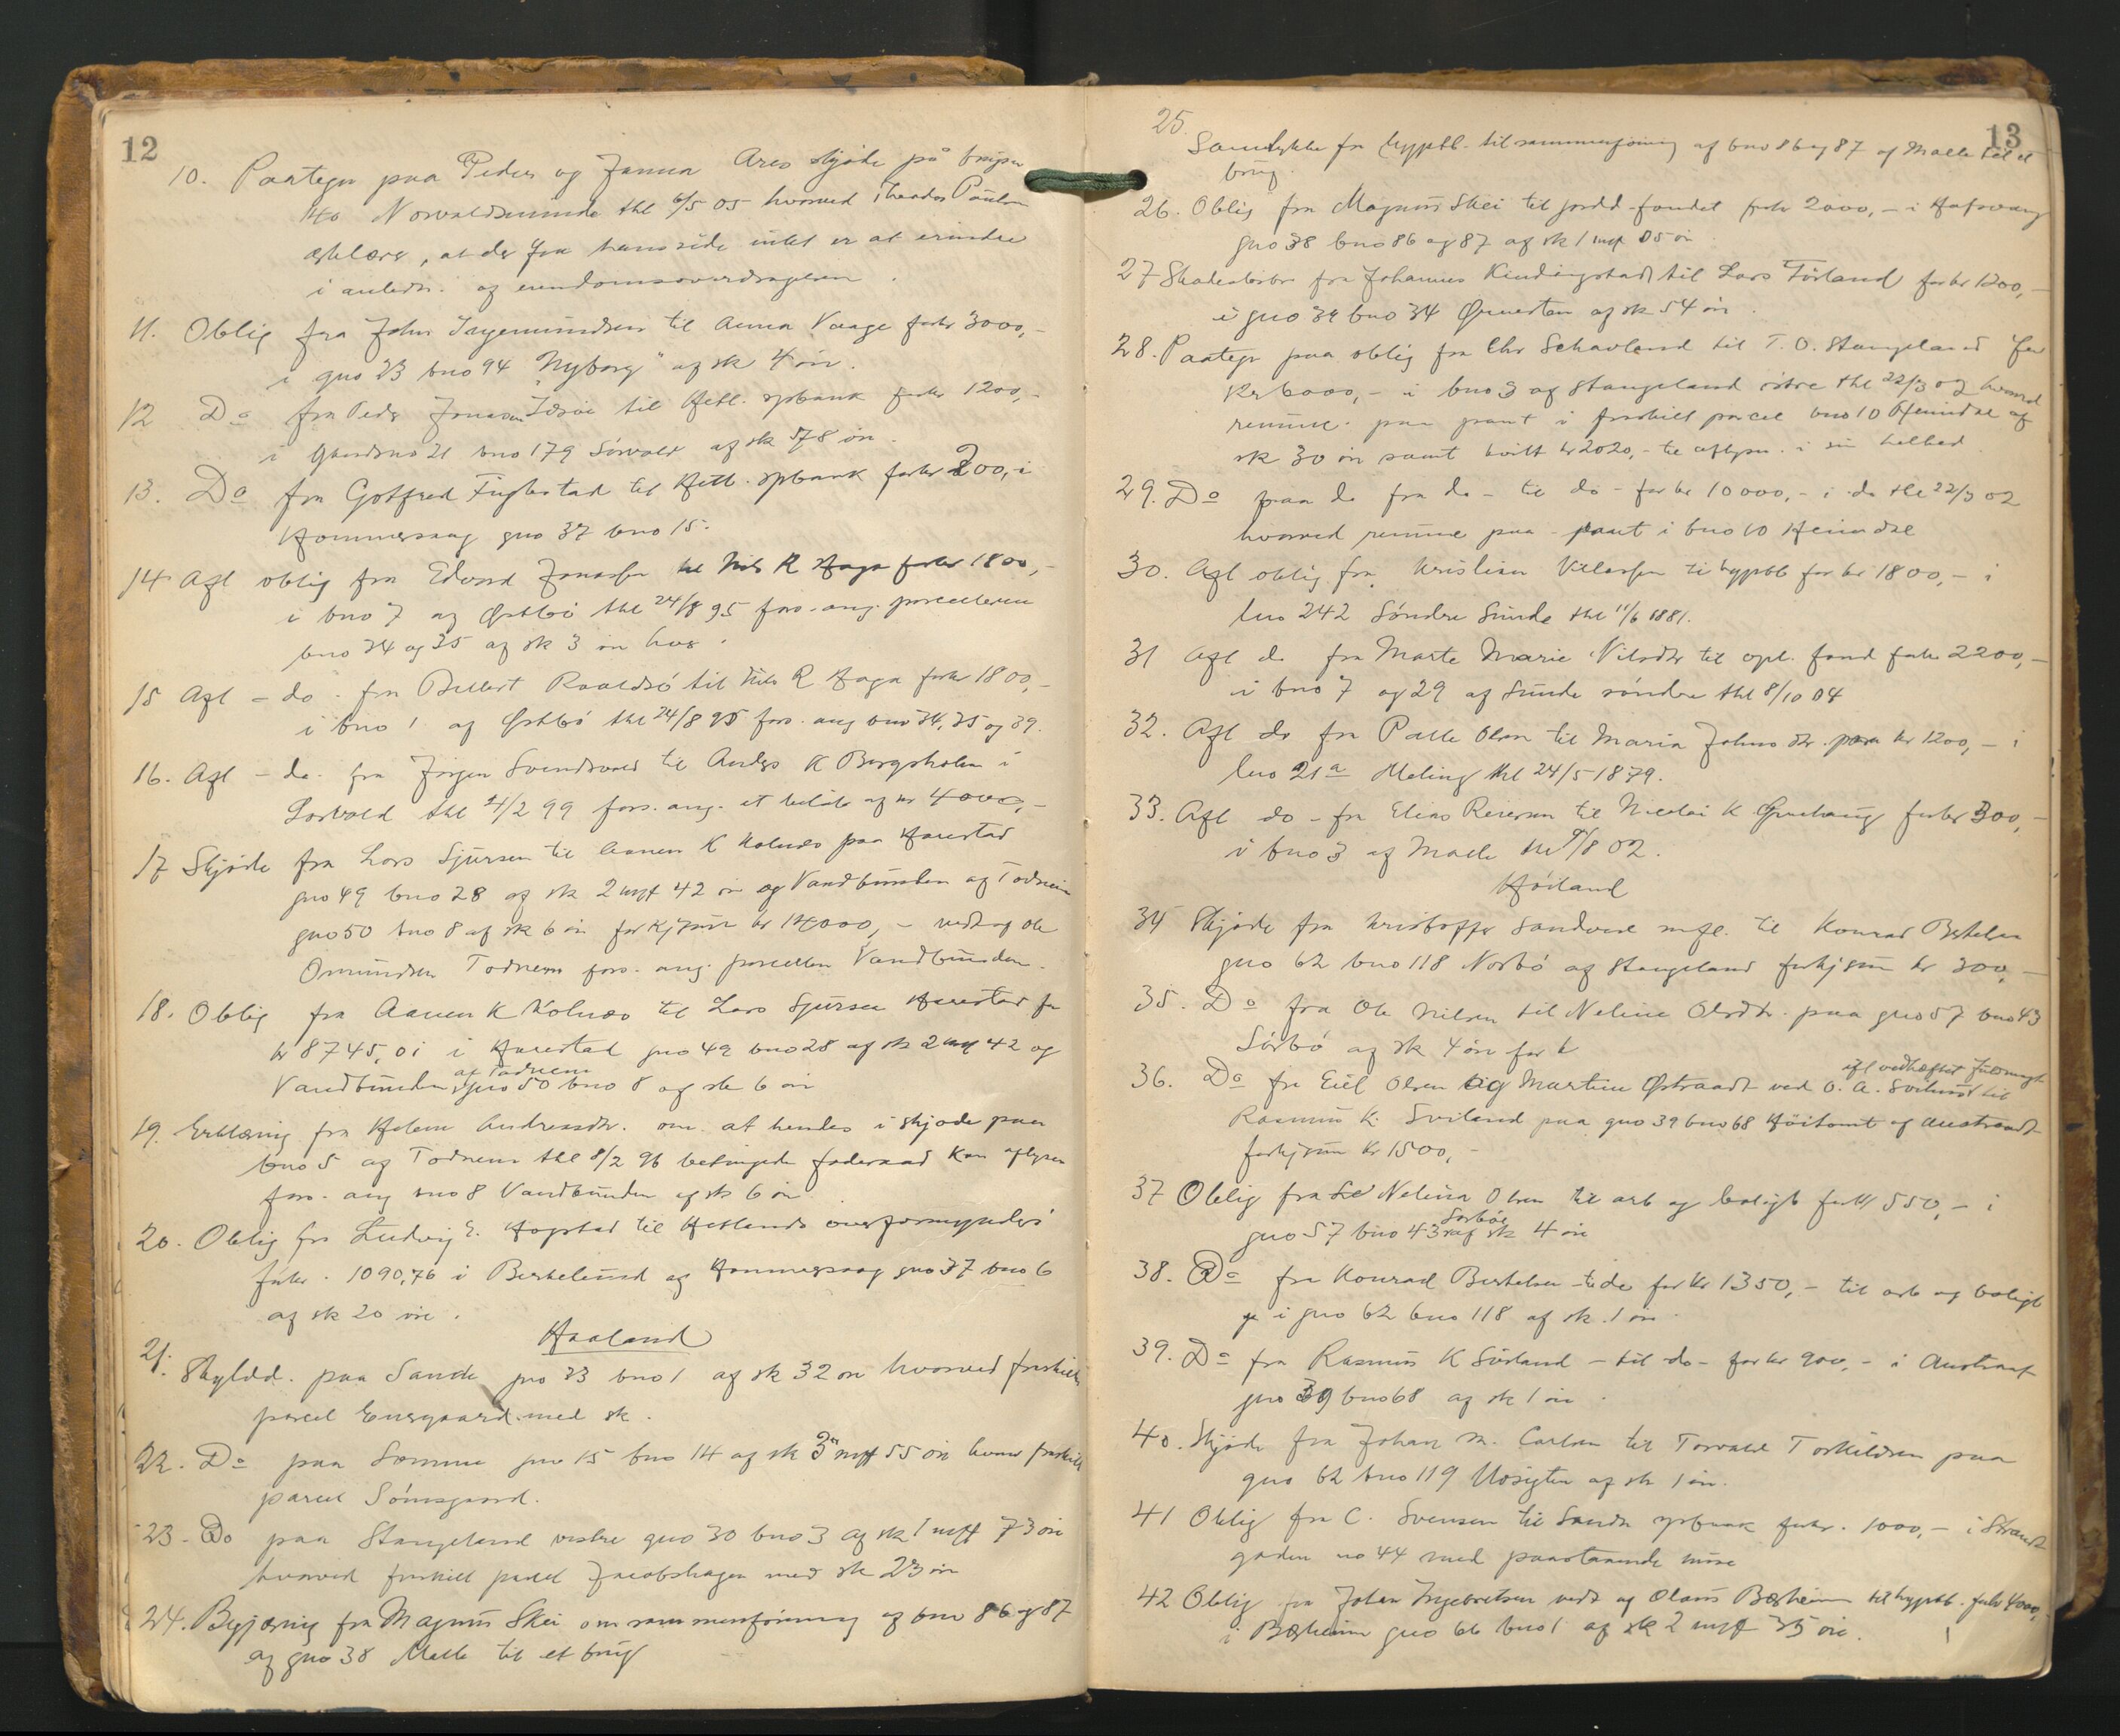 12
10. Paategn paa Peder og Janna Ares skjøde på bnr
140 Norvaldsminde thl 6/5 05 hvorved Theodor Paulsen
erklærer, at der fra hans side intet er at erindre
i anledn. af eiendomsoverdragelsen.
11. Oblig fra John Ingemundsen til Anna Vaage forkr 3000,-
i gno 23 bno 94 "Nyborg" af sk 4 øre.
12 Do fra Peder Jonasen til Hetl. spbank forkr 1200,-
i gno 21 bno 179 Sørvold af sk 8 øre.
13. Do fra Gotfred Fuglestad til Hetl. spbank forkr 200, i
Hommersaag gno 37 bno 15.
14 Afl oblig fra Edvard Jonassen til Nils R Haga forkr 1800,-
i bno 7 af Østbø thl 24/8 95 fors. ang. parcellerne
bno 34 og 35 af sk 3 øre hver.
15 Afl - do - fra Rolldsø til Nils R Haga forkr 1800,-
i bno 1 af Østbø thl 24/8 95 fors. ang bno 34, 35 og 39.
16. Afl - do. fra Jørgen Svendsvold til Anders K Bergsholm i
Sorvold thl 4/2 99 fors. ang. et beløb af kr 4000,-
17 Skjøde fra Lars Sjursen til Aanen K Kolnes paa Harestad
gno 49 bno 28 af sk 2 mrk 42 øre og Vandbunden af Todnem
gno 50 bno 8 af sk 6 øre for kjøsum kr 14000,- vedtag Ole
Omundsen Todnem fors. ang. parcellen Vandbunden.
18. Oblig fra Aanen K Kolnes til Lars Sjursen Harestad for
kr 8745,01 i Harestad gno 49 bno 28 af sk 2 mrk 42 og
af Todnem
Vandbunden gno 50 bno 8 af sk 6 øre
19. Erklæring fra Helene Andreasdtr. om at hendes i skjøde paa
bno 5 af Todnem thl 8/2 96 betingede føderaad kan aflyses
fors. ang bno 8 Vandbunden af sk 6 øre.
20. Oblig fra Ludvig E. Hogstad til Hetlands overformynderi
forkr. 1090,76 i Berkelund af Hommersaag gno 37 bno 6
af sk 20 øre.
Haaland
21. Skyldd. paa Sande gno 23 bno 1 af sk 32 øre hvorved fraskilt
parcel Engegaard med sk.
22. Do paa Sømme gno 15 bno 14 af sk 3 mrk 55 øre hvorved fraskilt
parcel Sømsgaard.
23. Do paa Stangeland vestre gno 30 bno 3 af sk 1 mrk 73 øre
hvorved fraskilt parcel Jacobshagen med sk 23 øre
24. Begjæring fra Magnus Skei om sammenføining af bno 86 og 87
af gno 38 Malle til et brug
13
25. Samtykke fra hyptbk. til sammenføining af bno 86 og 87 af Malle til et
brug.
26. Oblig fra Magnus Skei til jordd-fondet forkr 2000,- i Hafsvang
gno 38 bno 86 og 87 af sk 1 mrk 05 øre
27 Skadesløsbr fra Johannes Kindingstad til Lars Førland forkr 1200,-
i gno 39 bno 34 af sk 54 øre.
28. Paategn paa oblig fra Chr Schavland til T. O. Stangeland for
kr 6000,- i bno 3 af Stangeland østre thl 22/3 02 hvorved
renunc. paa pant i fraskilt parcel bno 10 Heimdal af
sk 30 øre samt kvitt kr 2020,- til aflysn. i sin helhed
29. Do paa do fra do - til do - for kr 10000,- i do thl 22/3 02
hvorved renunc paa pant i bno 10 Heimdal
30. Afl oblig fra Kristian Villarsen til hyptbk for kr 1800,- i
lno 242 Søndre Sunde thl 11/6 1881.
31 Afl do fra Marte Marie Nilsdtr til opl. fond forkr 2200,-
i bno 7 og 29 af Sunde søndre thl 8/10 04
32. Afl do fra Palle Olsen til Maria Johnsdtr. paa kr 1200,- i
lno 21a Meling thl 24/5 1879.
33. Afl do - fra Elias Reiersen til Nicolai K Grudhaug forkr 300,-
i bno 3 af Malle thl 9/8 02.
Høiland
34 Skjøde fra Kristoffer Sandved mfl. til Konrad Bertelsen
gno 62 bno 118 Norbø af Stangeland forkjsum kr 300,-
35. Do fra Ole Nilsen til Neline Olsdtr. paa gno 57 bno 43
Sørbø af sk 4 øre for k
ifl vedhæftet fuldmagt
36. Do fra Eiel Olsen og Martin Østraadt ved O. A. Sviland til
Rasmus K. Sviland paa gno 39 bno 68 Høitomt af Austraadt
forkjsum kr 1500,-
37 Oblig fra Neline Olsen til arb og boligb forkr 550,- i
Sørbø
gno 57 bno 43 af sk 4 øre
38. Do fra Konrad Bertelsen til do for kr 1350,- til arb og boligb
i gno 62 bno 118 af sk. 1 øre.
39. Do fra Rasmus K Sviland - til do - forkr 900,- i Austraat
gno 39 bno 68 af sk 1 øre.
40. Skjøde fra Johan M. Carlsen til Torvald Torkildsen paa
gno 62 bno 119 Udsigten af sk 1 øre.
41 Oblig fra C. Svensen til Sandn spbank forkr. 1000,- i Strand
gaden no 44 med paastaaende huse
42 Oblig fra Johan Ingebretsen vedt af Olaus Bærheim til hyptbk. forkr 4000,-
i Bærheim gno 66 bno 1 af sk 2 mrk 35 øre.